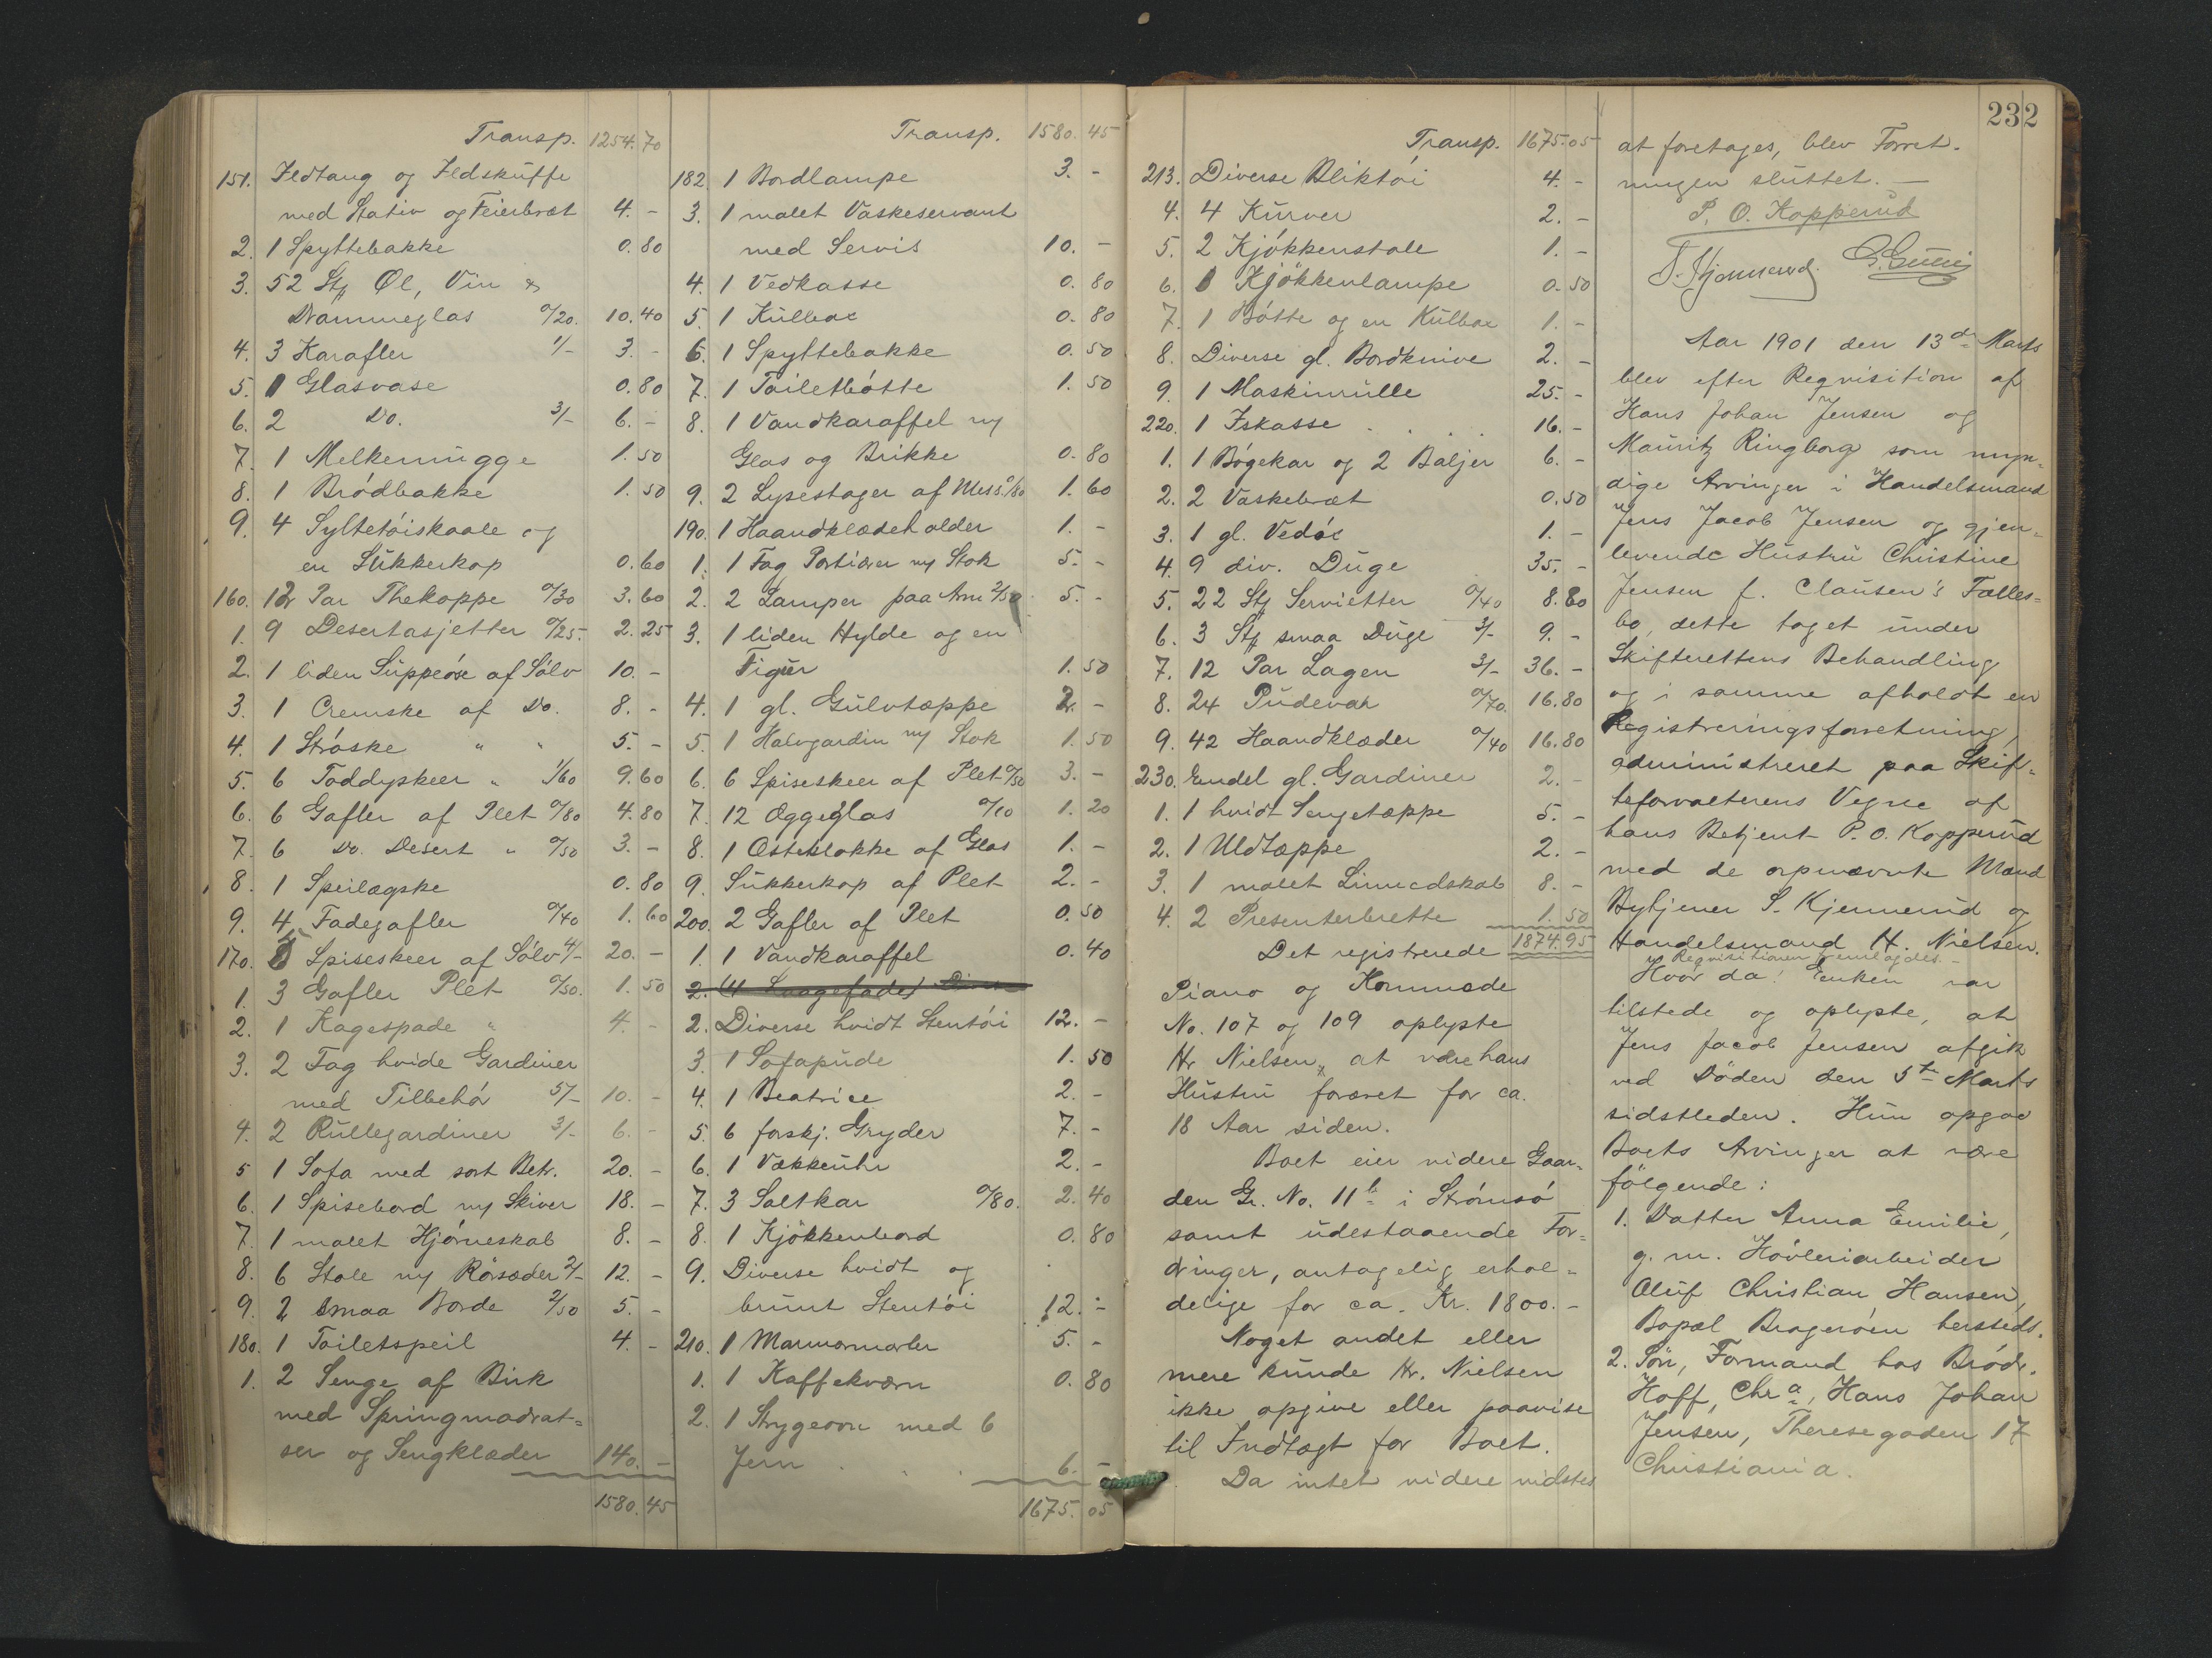 Transp. 1254.70
151. Ildtang og Ildskuffe
med Stativ og Feierbræt 4. -
2. 1 Spyttebakke 0.80
3. 52 Stf Øl, Vin &
Drammeglas 0/20. 10.40
4. 3 Karafler 1/- 3. -
5. 1 Glasvase 0.80
6. 2 Do. 3/- 6. -
7. 1 Melkemugge 1.50
8. 1 Brödbakke 1.50
9. 4 Syltetöiskaale og
en Sukkerkop 0.60
160. 12 Par Thekoppe 0/30 3.60
1. 9 Desertasjetter 0/25. 2.25
2. 1 liden Suppeöse af Sölv 10. -
3. 1 Cremske af Do. 8. -
4. 1 Ströske " " 5. -
5. 6 Toddyskeer " 1/60 9.60
6. 6 Gafler af Plet 0/80 4.80
7. 6 Do. Desert " 0/50 3. -
8. 1 Speilægske 0.80
9. 4 Fadegafler 0/40 1.60
170. 5 Spiseskeer af Sölv 4/- 20. -
1. 3 Gafler Plet 0/50. 1.50
2. 1 Kagespade " 4. -
3. 2 Fag hvide Gardiner
med Tilbehör 5/- 10. -
4. 2 Rullegardiner 3/- 6. -
5 1 Sofa med sort Betr. 20. -
6. 1 Spisebord m/ Skiver 18. -
7. 1 malet Hjörneskab 8. -
8. 6 Stole m/ Rörsæder 2/- 12. -
9. 2 smaa Borde 2/50 5. -
180. 1 Toiletspeil 4. -
1. 2 Senge af Birk
med Springmadrat=
ser og Sengklæder 140. -
1580.45
Transp. 1580.45
182. 1 Bordlampe 3. -
3. 1 malet Vaskeservant
med Servis 10. -
4. 1 Vedkasse 0.80
5. 1 Kulbox 0.80
6. 1 Spyttebakke 0.50
7. 1 Toiletbötte 1.50
8. 1 Vandkaraffel m/
Glas og Brikke 0.80
9. 2 Lysestager af Mess. 0/80 1.60
190. 1 Haandklædeholder 1. -
1. 1 Fag Portiører m/ Stok 5. -
2. 2 Lamper paa Arm 2/50 5. -
3. 1 liden Hylde og en
Figur 1.50
4. 1 gl. Gulvtæppe 2. -
5. 1 Halvgardin m/ Stok 1.50
6. 6 Spiseskeer af Plet 0/50 3. -
7. 12 Æggeglas 0/10 1.20
8. 1 Osteklokke af Glas 1. -
9. Sukkerkop af Plet 2. -
200. 2 Gafler af Plet 0.50
1. 1 Vandkaraffel 0.40
2.
2. Diverse hvidt Stentöi 12. -
3. 1 Sofapude 1.50
4. 1 Beatrice 2. -
5. 6 forskj. Gryder 7. -
6. 1 Vækkeuhr 2. -
7. 3 Saltkar 0/80. 2.40
8. 1 Kjökkenbord 0.80
9. Diverse hvidt og
brunt Stentöi 12. -
210. 1 Marmormorter 5. -
1. 1 Kaffekværn 0.80
2. 1 Strygeovn med 6
Jern 6. -
1675.05
232
Transp. 1675.05
213. Diverse Bliktöi 4. -
4. 4 Kurver 2. -
5. 2 Kjökkenstole 1. -
6. 1 Kjökkenlampe 0.50
7. 1 Bötte og en Kulbox 1. -
8. Diverse gl. Bordknive 2. -
9. 1 Maskinrulle 25. -
220. 1 Iskasse 16. -
1. 1 Bögekar og 2 Baljer 6. -
2. 2 Vaskebræt 0.50
3. 1 gl. Vedöx 1. -
4. 9 div. Duge 35. -
5. 22 Stf Servietter 0/40 8.80
6. 3 Stf smaa Duge 3/- 9. -
7. 12 Par Lagen 3/- 36. -
8. 24 Pudevar 0/70. 16.80
9. 42 Haandklæder 0/40 16.80
230. Endel gl. Gardiner 2. -
1. 1 hvidt Sengetæppe 5. -
2. 1 Uldtæppe 2. -
3. 1 malet Linnedskab 8. -
4. 2 Presenterbrette 1.50
1874.95
Det registrerede
Piano og Kommode
No. 107 og 109 oplyste
Hr Nielsen, at være hans
Hustru foræret for ca.
18 Aar siden.
Boet eier videre Gaar=
den Gr. No. 11b i Strömsö
samt udestaaende For=
dringer, antagelig erhol=
delige for ca. Kr. 1800. -
Noget andet eller
mere kunde Hr. Nielsen
ikke opgive eller paavise
til Indtægt for Boet.
Da intet videre vidstes
at foretages, blev Forret.
ningen sluttet. —
P. O. Kopperud
Aar 1901 den 13de Marts
blev efter Reqvisition af
Hans Johan Jensen og
Mauritz Ringborg som myn=
dige Arvinger i Handelsmand
Jens Jacob Jensen og gjen=
levende Hustru Christine
Jensen f. Clausen's Fælles=
bo, dette taget under
Skifterettens Behandling
og i samme afholdt en
Registreringsforretning,
administreret paa Skif=
teforvalterens Vegne af
hans Betjent P. O. Kopperud
med de opnævnte Mænd
Bytjener S. Kjennerud og
Handelsmand H. Nielsen.
Reqvisitionen fremlagdes. -
Hvor da! Enken var
tilstede og oplyste, at
Jens Jacob Jensen afgik
ved Döden den 5te Marts
sidstleden. Hun opgav
Boets Arvinger at være
fölgende:
1. Datter Anna Emilie,
g. m. Hövleriarbeider
Oluf Christian Hansen,
Bopæl Brageröen hersteds.
2. Sön, Formand hos Brödr.
Hoff, Chra, Hans Johan
Jensen, Theresegaden 17
Christiania.